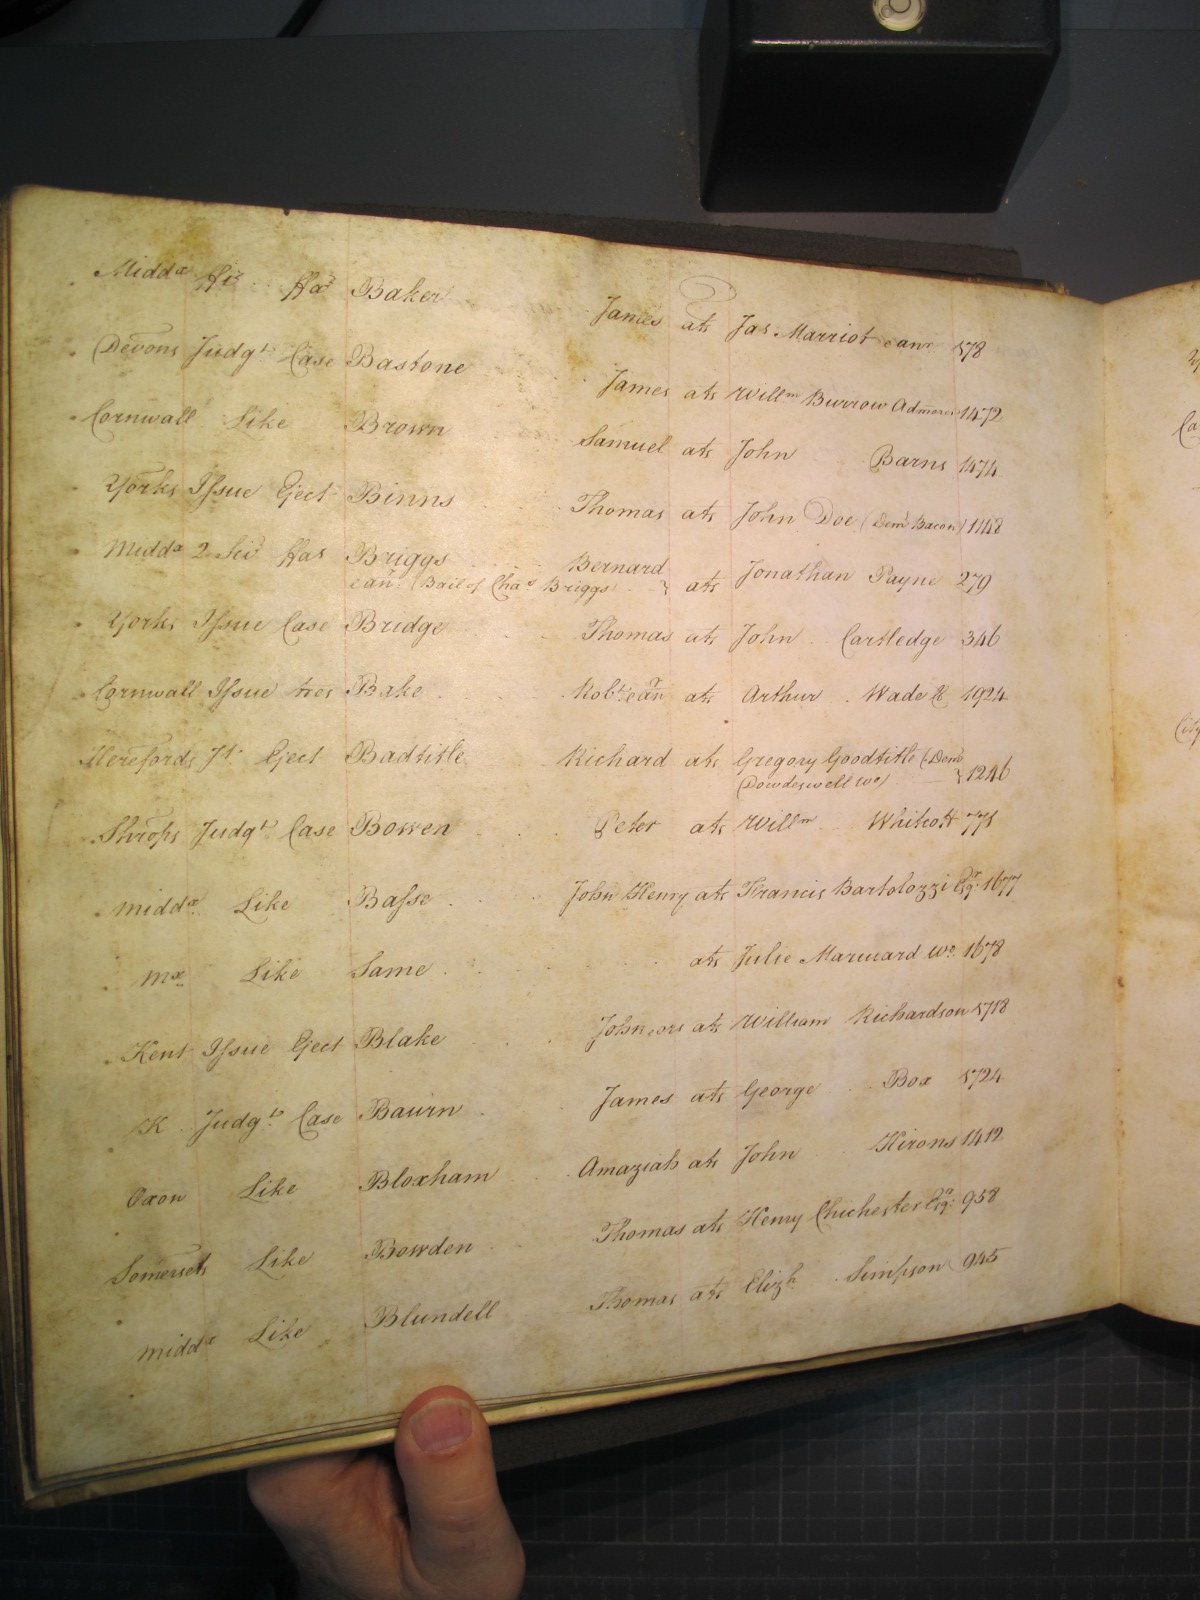 Middx ffi: ffas Baker James ats Jas. Marriot 578
Devons Judgt Case Bastone James ats Willm Burrow Admor 1472
Cornwall Like Brown Samuel ats John Barns 1474
Yorks Issue Eject Binns Thomas ats John Doe (Dem Bacon) 1148
Middx 2 Sci ffas Briggs Bernard ats Jonathan Payne 279
(Bail of Chas Briggs)
Yorks Issue Case Bridge Thomas ats John Cartledge 346
Cornwall Issue tres Bake Robt ats Arthur Wade 1924
Herefords Jt Eject Badtitle Richard ats Gregory Goodtitle (Dem 1246
Dowdeswell wo)
Shrops Judgt Case Bowen Peter ats Willm Whitcott 771
Middx Like Basse John Henry ats Francis Bartolozzi Esqr 1677
Mx Like Same ats Julie Marward wo. 1678
Kent Issue Eject Blake John ors ats William Richardson 1718
K Judgt Case Baurn James ats George Box 1724
Oxon Like Bloxham Amaziah ats John Hirons 1412
Somersets Like Bowden Thomas ats Henry Chichester Esqr 958
Middx Like Blundell Thomas ats Elizh Simpson 945